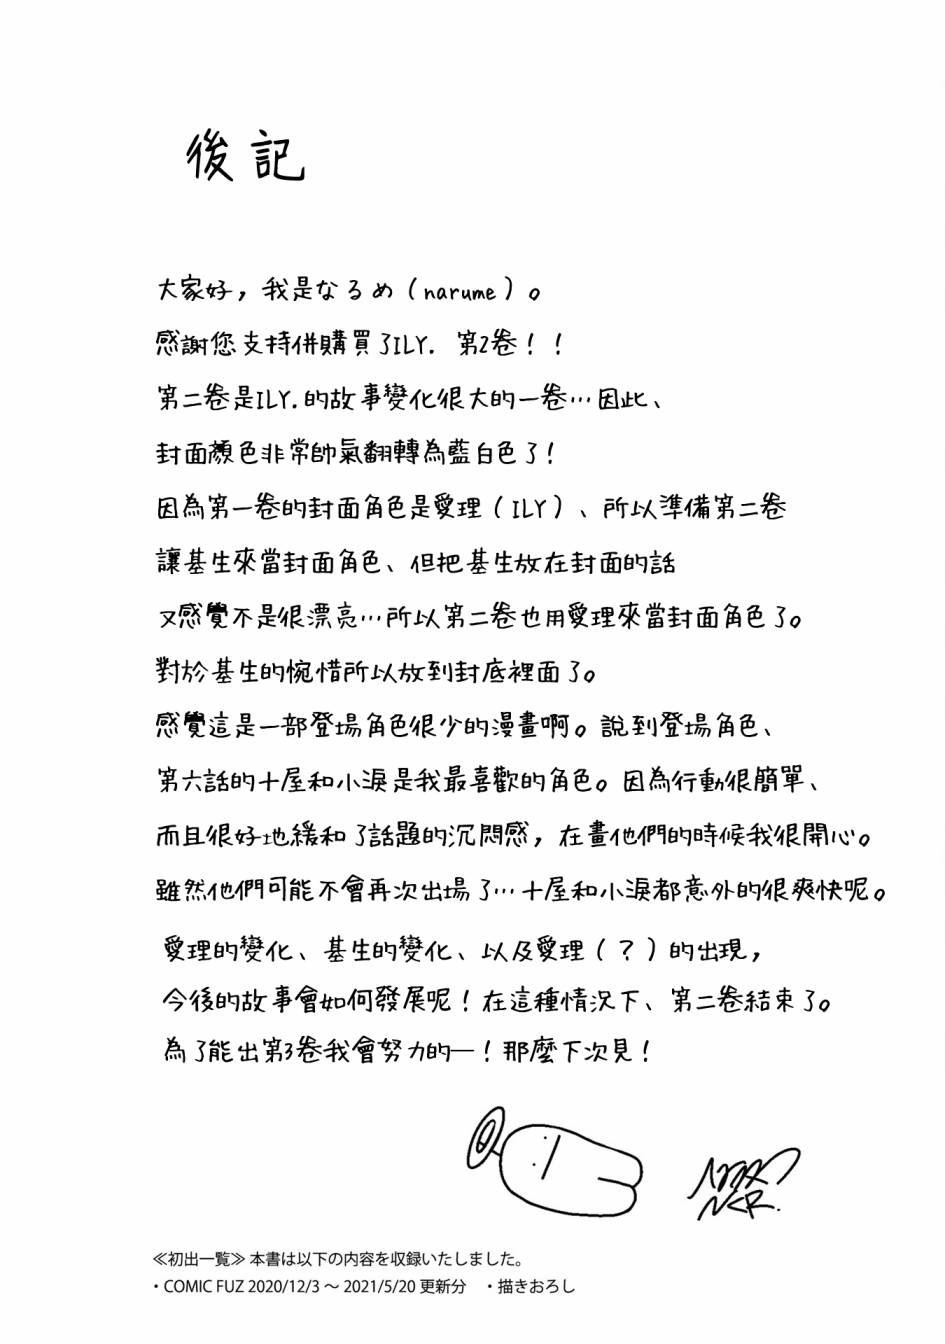 後記
大家好，我是なるめ（narume）。
感謝您支持併購買了ILY. 第2卷！！
第二卷是ILY.的故事變化很大的一卷…因此、
封面顏色非常帥氣翻轉為藍白色了！
因為第一卷的封面角色是愛理（ILY）、所以準備第二卷
讓基生來當封面角色、但把基生放在封面的話
又感覺不是很漂亮…所以第二卷也用愛理來當封面角色了。
對於基生的惋惜所以放到封底裡面了。
感覺這是一部登場角色很少的漫畫啊。說到登場角色、
第六話的十屋和小淚是我最喜歡的角色。因為行動很簡單、
而且很好地緩和了話題的沉悶感，在畫他們的時候我很開心。
雖然他們可能不會再次出場了…十屋和小淚都意外的很爽快呢。
愛理的變化、基生的變化、以及愛理（？）的出現，
今後的故事會如何發展呢！在這種情況下、第二卷結束了。
為了能出第3卷我會努力的—！那麼下次見！
≪初出一覧≫本書は以下の内容を収録いたしました。
・COMIC FUZ 2020/12/3 ～ 2021/5/20 更新分　・描きおろし